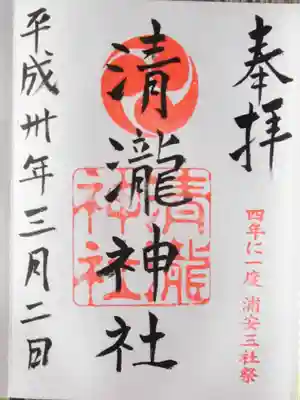 奉拝
四年に一度 浦安三社祭
清瀧神社
清瀧神社
平成卅年三月二日